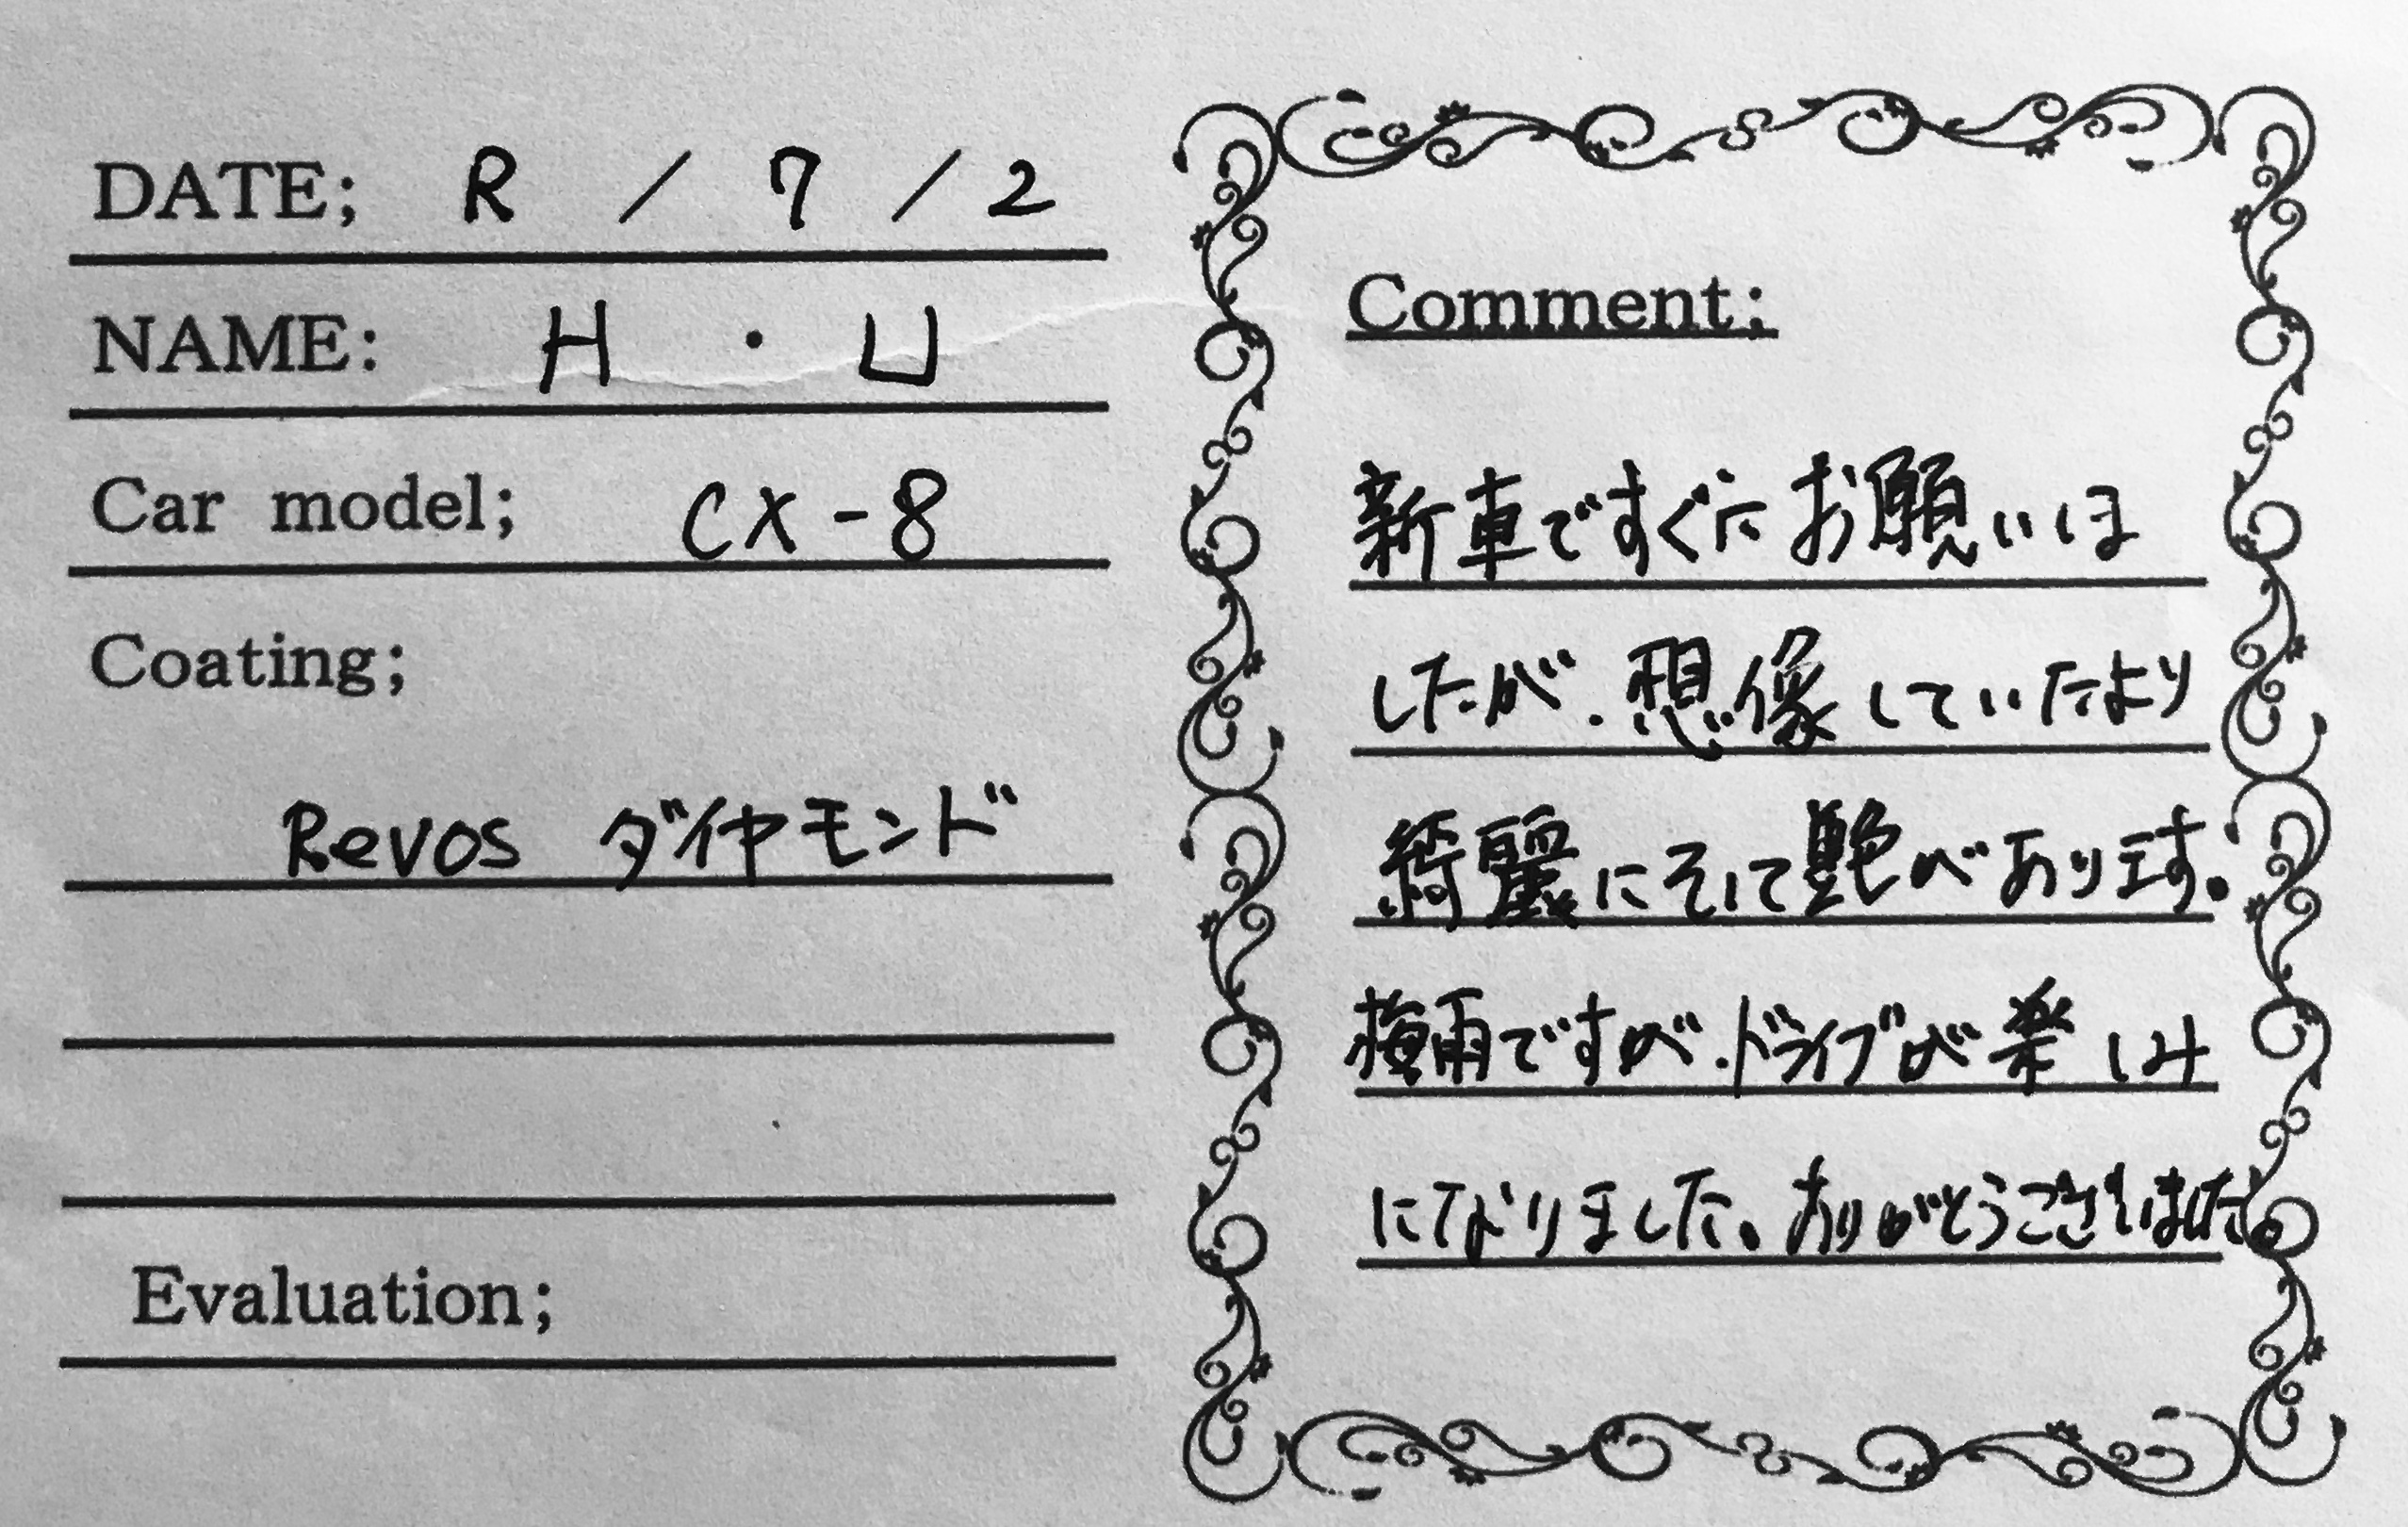 DATE; R / 7 / 2
NAME: H ・ U
Car model; CX-8
Coating;
Revos ダイヤモンド
Evaluation;
Comment;
新車ですぐにお願いしま
したが、想像していたより
綺麗にそして艶があります。
梅雨ですが、ドライブが楽しみ
になりました。ありがとうございました。